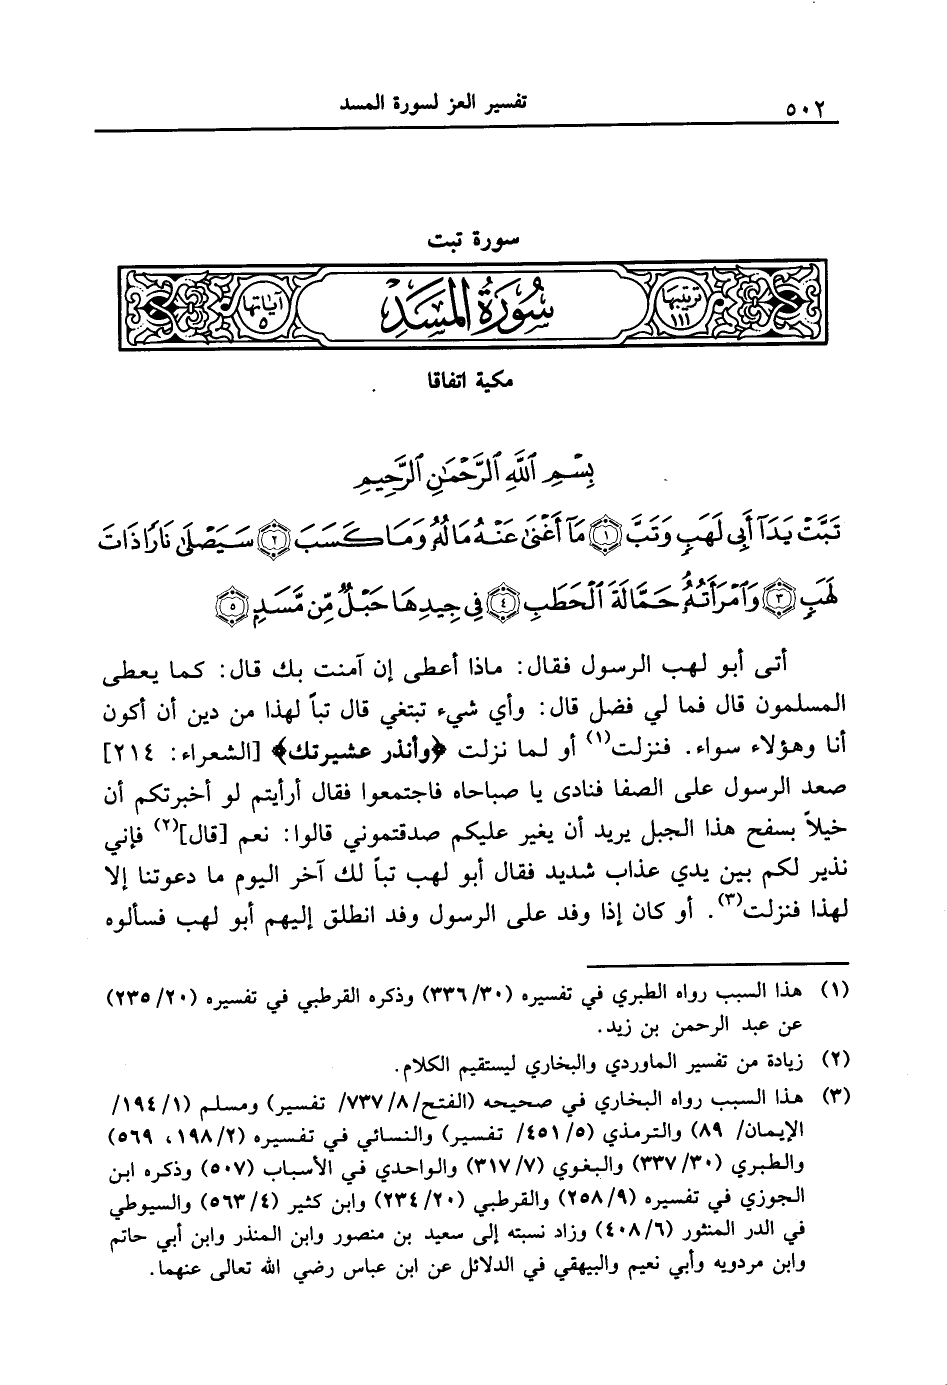 ٥٠٢ تفسير العز لسورة المسد
سورة تبت
ترتيبها ١١١ سُورَةُ المَسَدِ آياتها ٥
مكية اتفاقا
بِسْمِ ٱللَّهِ ٱلرَّحْمَٰنِ ٱلرَّحِيمِ
تَبَّتْ يَدَآ أَبِى لَهَبٍ وَتَبَّ ١ مَآ أَغْنَىٰ عَنْهُ مَالُهُۥ وَمَا كَسَبَ ٢ سَيَصْلَىٰ نَارًا ذَاتَ
لَهَبٍ ٣ وَٱمْرَأَتُهُۥ حَمَّالَةَ ٱلْحَطَبِ ٤ فِى جِيدِهَا حَبْلٌ مِّن مَّسَدٍ ٥
أتى أبو لهب الرسول فقال: ماذا أعطى إن آمنت بك قال: كما يعطى
المسلمون قال فما لي فضل قال: وأي شيء تبتغي قال تباً لهذا من دين أن أكون
أنا وهؤلاء سواء. فنزلت(١) أو لما نزلت ﴿وأنذر عشيرتك﴾ [الشعراء: ٢١٤]
صعد الرسول على الصفا فنادى يا صباحاه فاجتمعوا فقال أرأيتم لو أخبرتكم أن
خيلاً بسفح هذا الجبل يريد أن يغير عليكم صدقتموني قالوا: نعم [قال](٢) فإني
نذير لكم بين يدي عذاب شديد فقال أبو لهب تباً لك آخر اليوم ما دعوتنا إلا
لهذا فنزلت(٣). أو كان إذا وفد على الرسول وفد انطلق إليهم أبو لهب فسألوه
(١) هذا السبب رواه الطبري في تفسيره (٣٣٦/٣٠) وذكره القرطبي في تفسيره (٢٣٥/٢٠)
عن عبد الرحمن بن زيد.
(٢) زيادة من تفسير الماوردي والبخاري ليستقيم الكلام.
(٣) هذا السبب رواه البخاري في صحيحه (الفتح/٨/٧٣٧/ تفسير) ومسلم (١/١٩٤/
الإيمان/ ٨٩) والترمذي (٥/٤٥١/ تفسير) والنسائي في تفسيره (١٩٨/٢، ٥٦٩)
والطبري (٣٣٧/٣٠) والبغوي (٣١٧/٧) والواحدي في الأسباب (٥٠٧) وذكره ابن
الجوزي في تفسيره (٢٥٨/٩) والقرطبي (٢٣٤/٢٠) وابن كثير (٥٦٣/٤) والسيوطي
في الدر المنثور (٤٠٨/٦) وزاد نسبته إلى سعيد بن منصور وابن المنذر وابن أبي حاتم
وابن مردويه وأبي نعيم والبيهقي في الدلائل عن ابن عباس رضي الله تعالى عنهما.